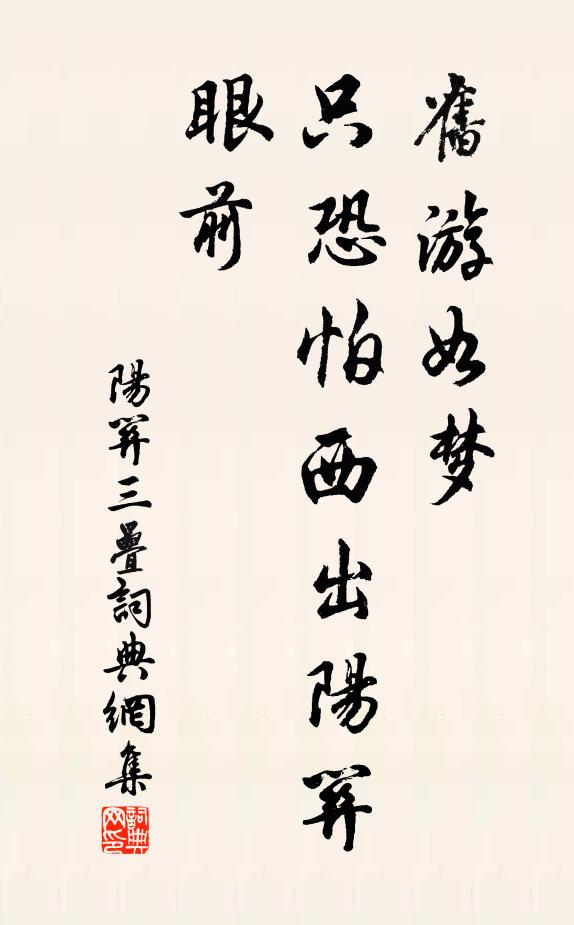 舊游如梦
只恐怕西出陽関
眼前
陽関三疊詞典網集
詞典网印